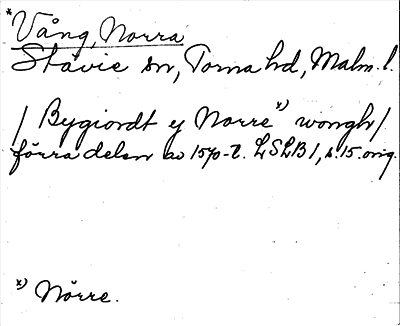 * Vång, Norra
Stävie sn, Torna hd, Malm. l.
/ Bygiordt ej Norre *) wongh /
förra delen av 1570-t. LSLB 1, s. 15. orig.
*) Nörre.